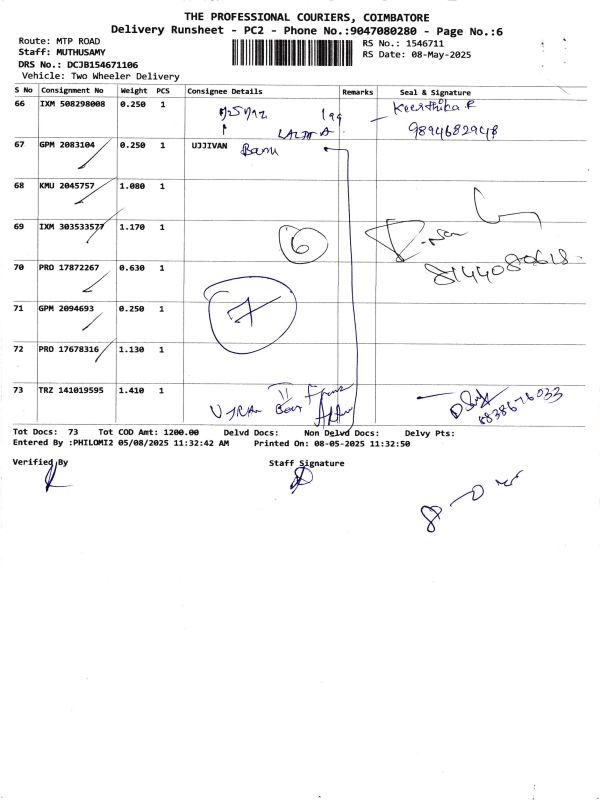 THE PROFESSIONAL COURIERS, COIMBATORE
Delivery Runsheet - PC2 - Phone No.:9047080280 - Page No.:6
Route: MTP ROAD
RS No.: 1546711
Staff: MUTHUSAMY
RS Date: 08-May-2025
DRS No.: DCJB154671106
Vehicle: Two Wheeler Delivery
S No Consignment No Weight PCS Consignee Details Remarks Seal & Signature
66 IXM 508298008 0.250 1 Keerthika R
9894682948
67 GPM 2083104 0.250 1 UJJIVAN Bank
68 KMU 2045757 1.080 1
69 IXM 303533577 1.170 1 6
8144080618
70 PRO 17872267 0.630 1
71 GPM 2094693 0.250 1 7
72 PRO 17678316 1.130 1
73 TRZ 141019595 1.410 1
8838676033
Tot Docs: 73 Tot COD Amt: 1200.00 Delvd Docs: Non Delvd Docs: Delvy Pts:
Entered By :PHILOMI2 05/08/2025 11:32:42 AM Printed On: 08-05-2025 11:32:50
Verified By Staff Signature